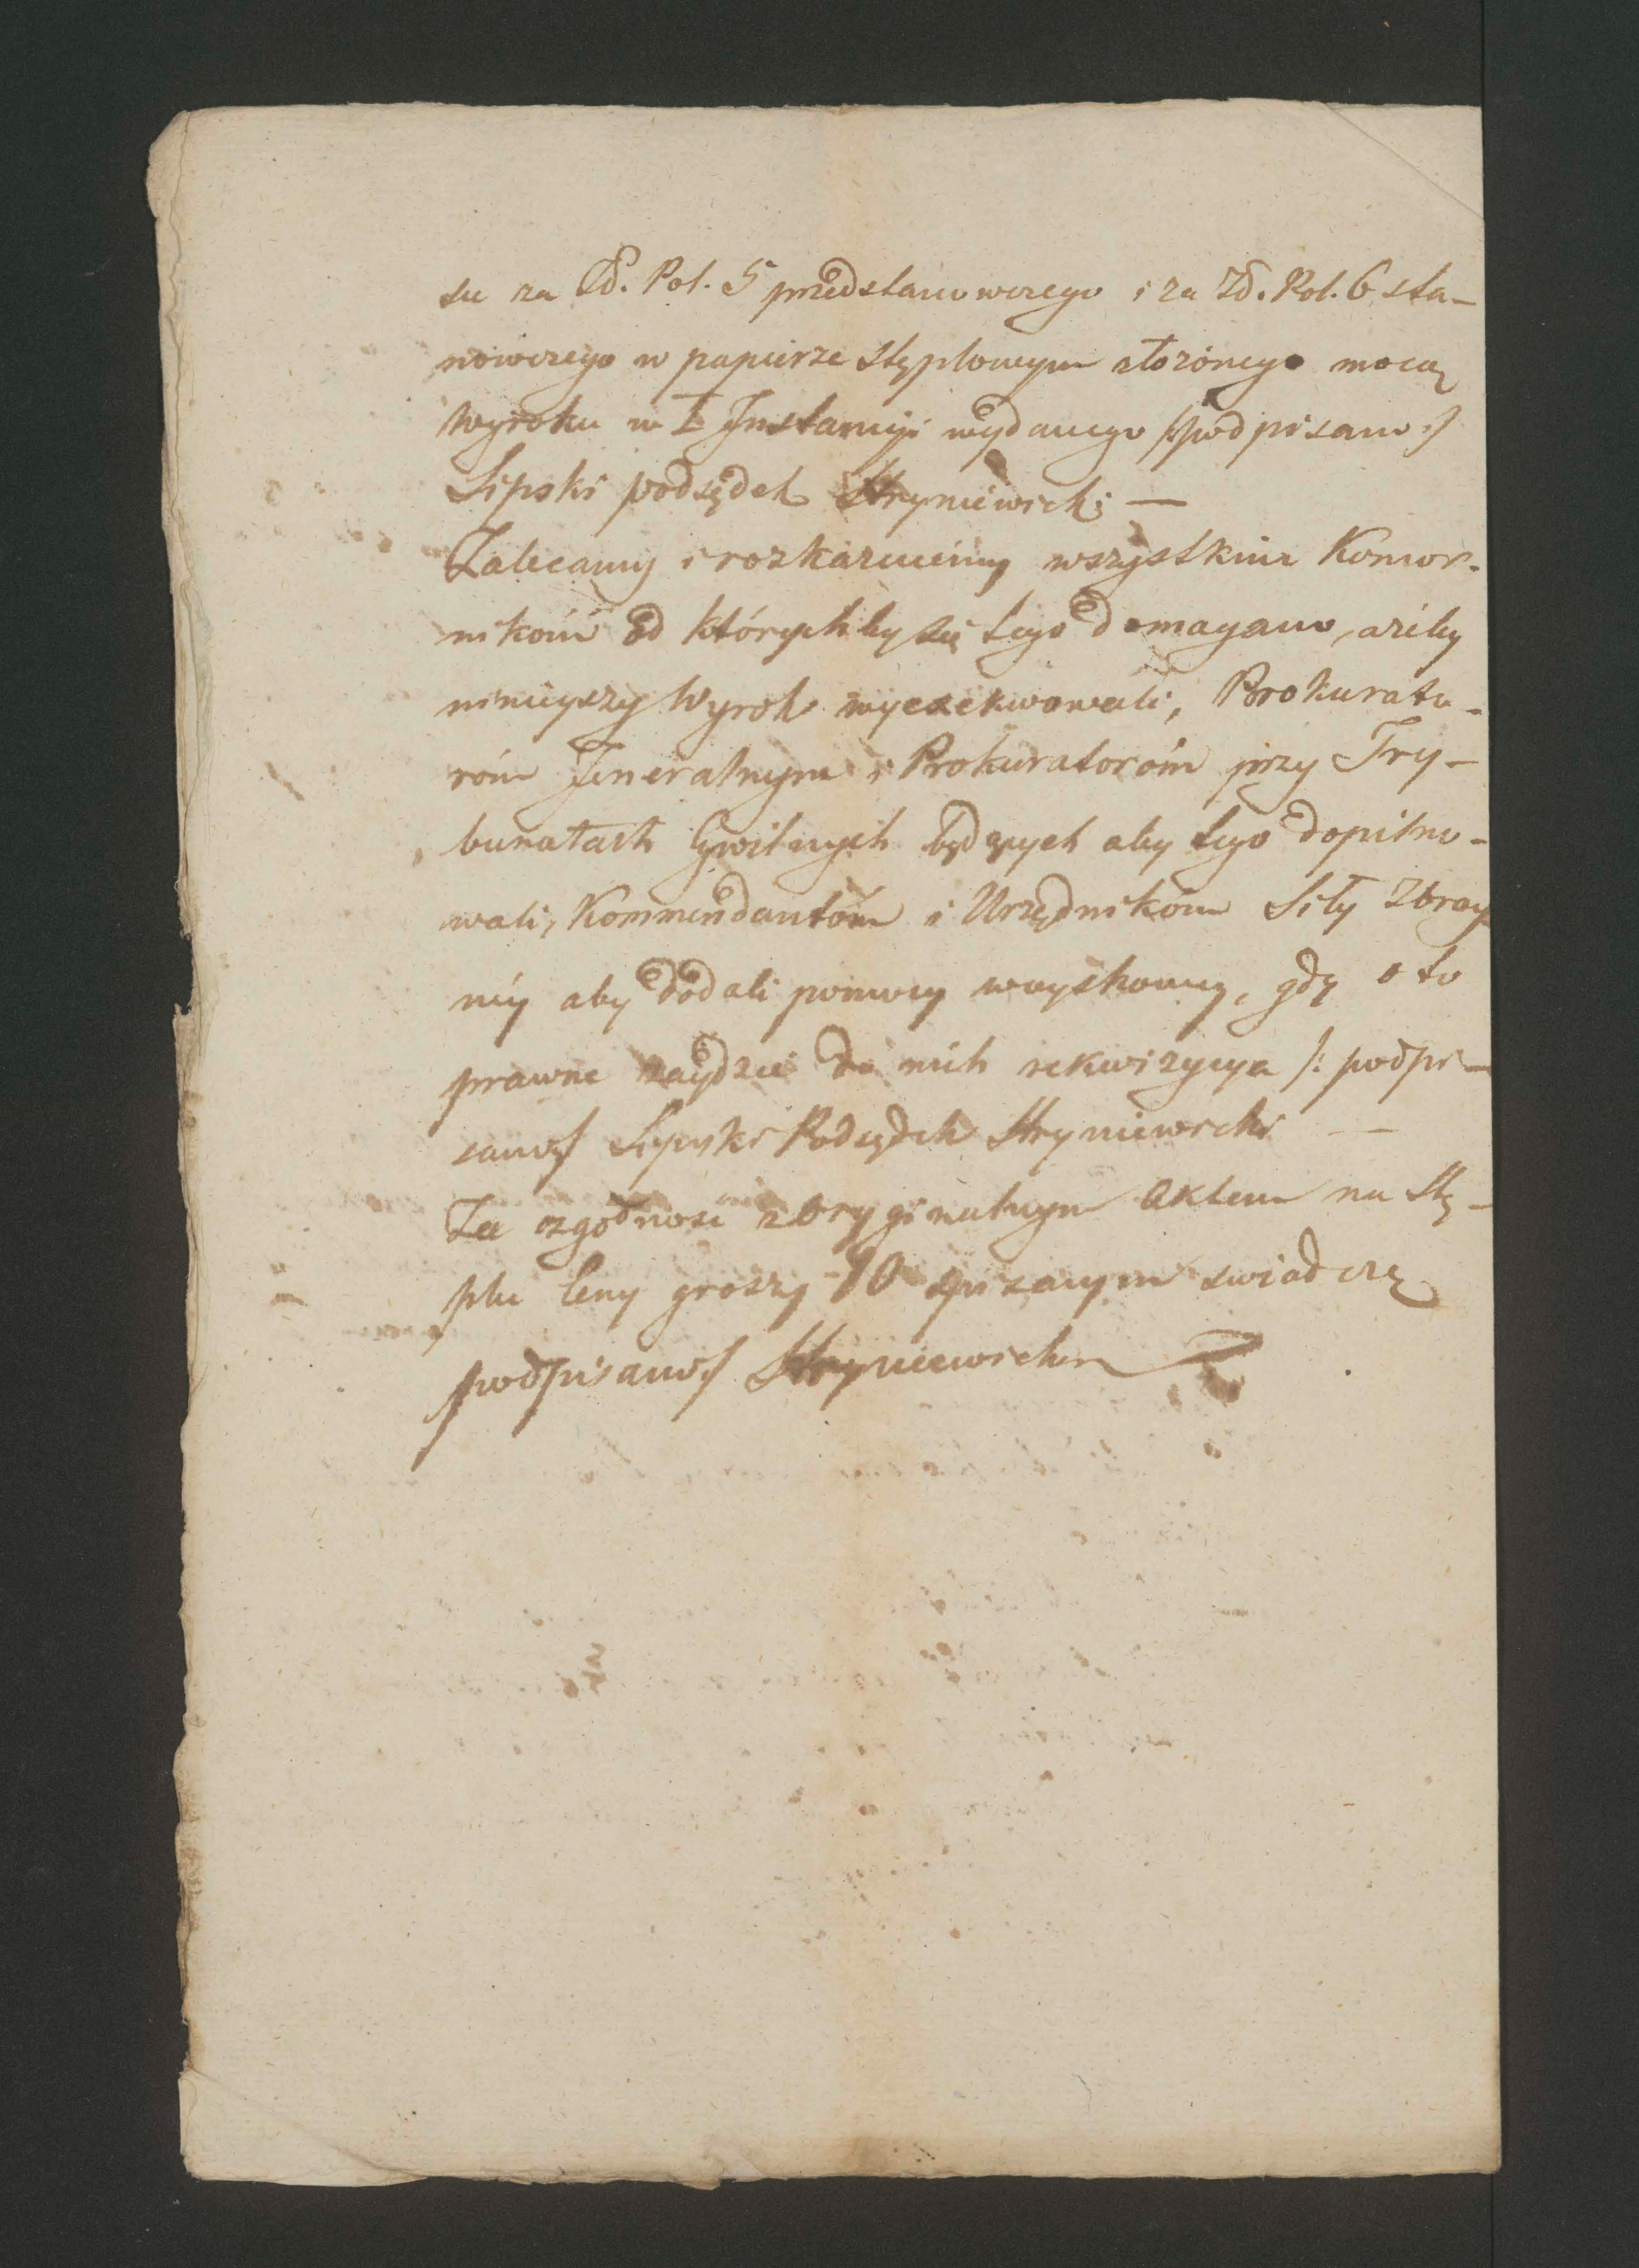 su za Zł. Pol. 5 przedstanowczego i za Zł. Pol. 6 sta-
nowczego w papierze stęplowym złożonego mocą
Wyroku w I Instancyi wydanego /:podpisano:/
Lipski podsędek Hryniewicki —
Zalecamy i rozkazuiemy wszystkim Komor-
nikom od którychby się tego domagano, ażeby
ninieyszy Wyrok wyexekwowali, Prokurato-
róm Jeneralnym i Prokuratoróm przy Try-
bunałach Cywilnych będących aby tego dopilno-
wali, Kommendantóm i Urzędnikóm Siły Zbroy
néy aby dodali pomocy woyskowey, gdy o to
prawne zaydzie do nich rekwizycya /: podpi-
sano:/ Lipski Podsędek Hryniewicki —
Za zgodność z Oryginalnym Aktem na stę-
plu Ceny groszy 10 spisanym swiadczę
podpisano:/ Hryniewicki